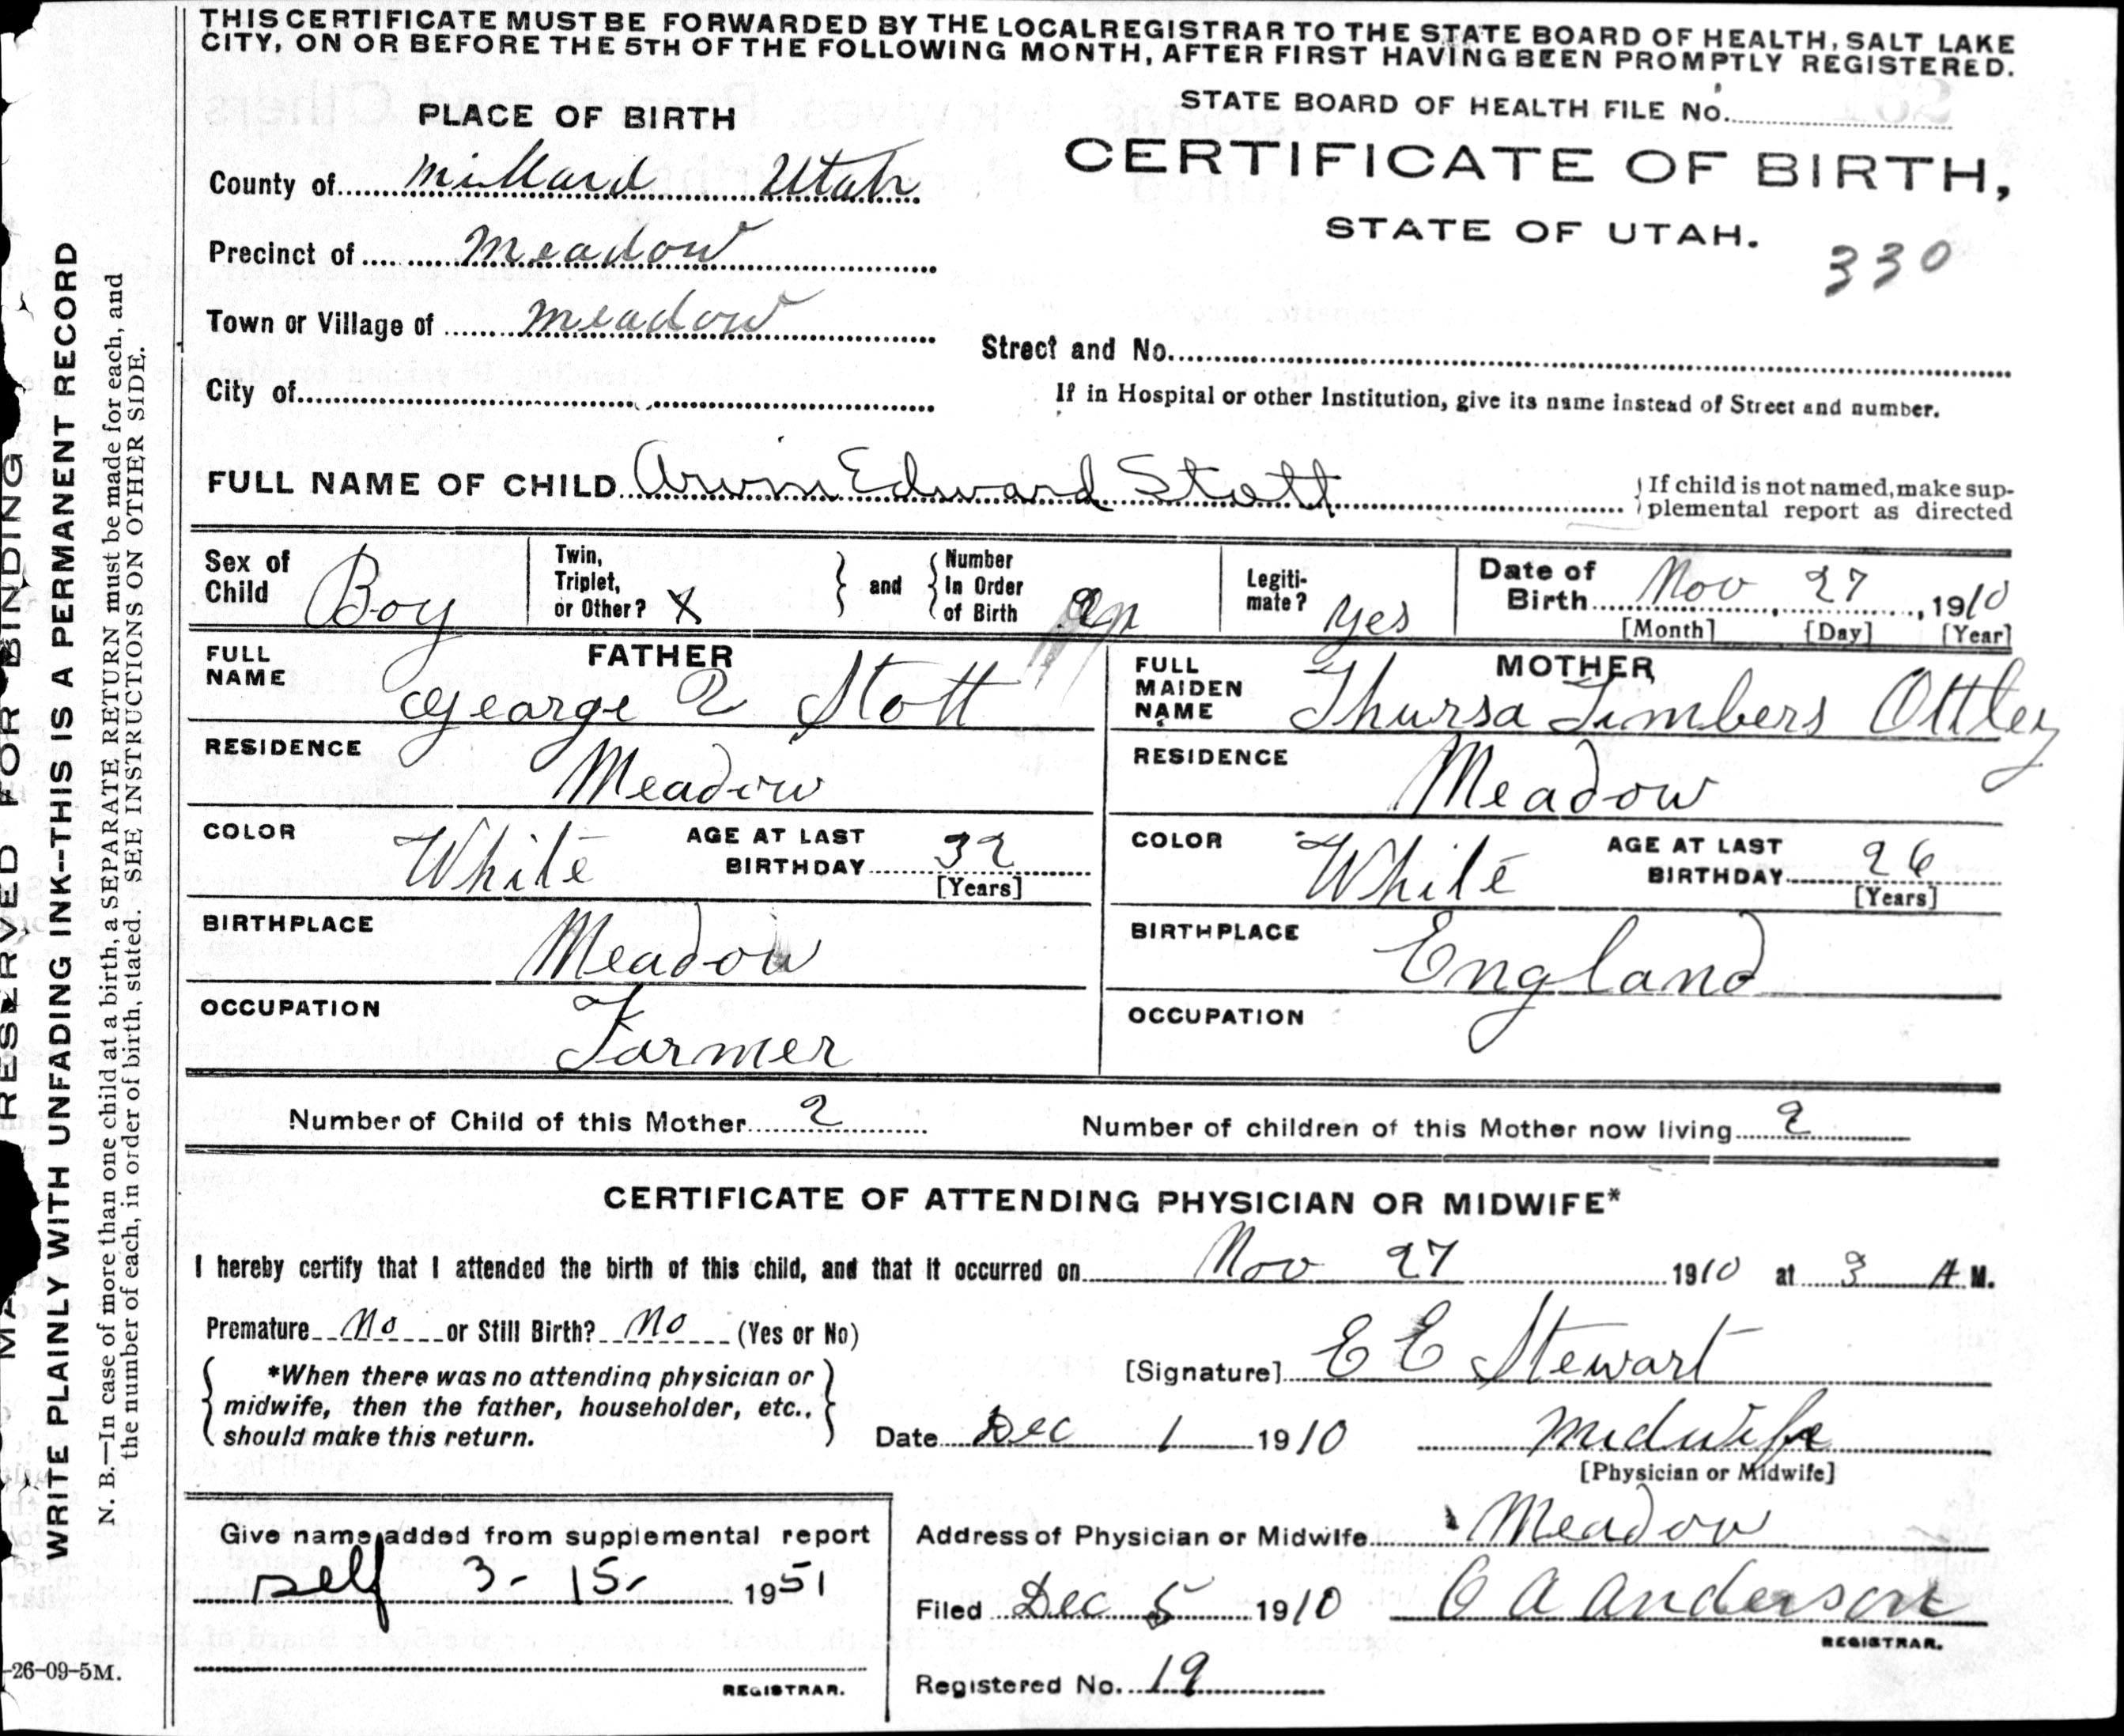 THIS CERTIFICATE MUST BE FORWARDED BY THE LOCAL REGISTRAR TO THE STATE BOARD OF HEALTH, SALT LAKE
CITY, ON OR BEFORE THE 5TH OF THE FOLLOWING MONTH, AFTER FIRST HAVING BEEN PROMPTLY REGISTERED.
PLACE OF BIRTH
County of Millard Utah
Precinct of Meadow
Town or Village of Meadow
City of
STATE BOARD OF HEALTH FILE No.
CERTIFICATE OF BIRTH,
STATE OF UTAH.
330
Street and No.
If in Hospital or other Institution, give its name instead of Street and number.
FULL NAME OF CHILD Edward Stott
If child is not named, make sup-
plemental report as directed
Sex of Child Boy
Twin, Triplet, or Other? X
and Number In Order of Birth
Legiti-mate? yes
Date of Birth Nov 27, 1910
[Month] [Day] [Year]
FATHER
FULL NAME George Stott
RESIDENCE Meadow
COLOR White AGE AT LAST BIRTHDAY 32
[Years]
BIRTHPLACE Meadow
OCCUPATION Farmer
MOTHER
FULL MAIDEN NAME Thursa Timbers Ottley
RESIDENCE Meadow
COLOR White AGE AT LAST BIRTHDAY 26
[Years]
BIRTHPLACE England
OCCUPATION
Number of Child of this Mother 2 Number of children of this Mother now living 2
CERTIFICATE OF ATTENDING PHYSICIAN OR MIDWIFE*
I hereby certify that I attended the birth of this child, and that it occurred on Nov 27 1910 at 3 A M.
Premature No or Still Birth? No (Yes or No)
*When there was no attending physician or
midwife, then the father, householder, etc.,
should make this return.
[Signature] E E Stewart
Date Dec 1 1910 Midwife
[Physician or Midwife]
Give name added from supplemental report
self 3-15- 1951
REGISTRAR.
Address of Physician or Midwife Meadow
Filed Dec 5 1910 C A Anderson
REGISTRAR.
Registered No. 19
RESERVED FOR BINDING
WRITE PLAINLY WITH UNFADING INK--THIS IS A PERMANENT RECORD
N. B.—In case of more than one child at a birth, a SEPARATE RETURN must be made for each, and
the number of each, in order of birth, stated. SEE INSTRUCTIONS ON OTHER SIDE.
-26-09-5M.